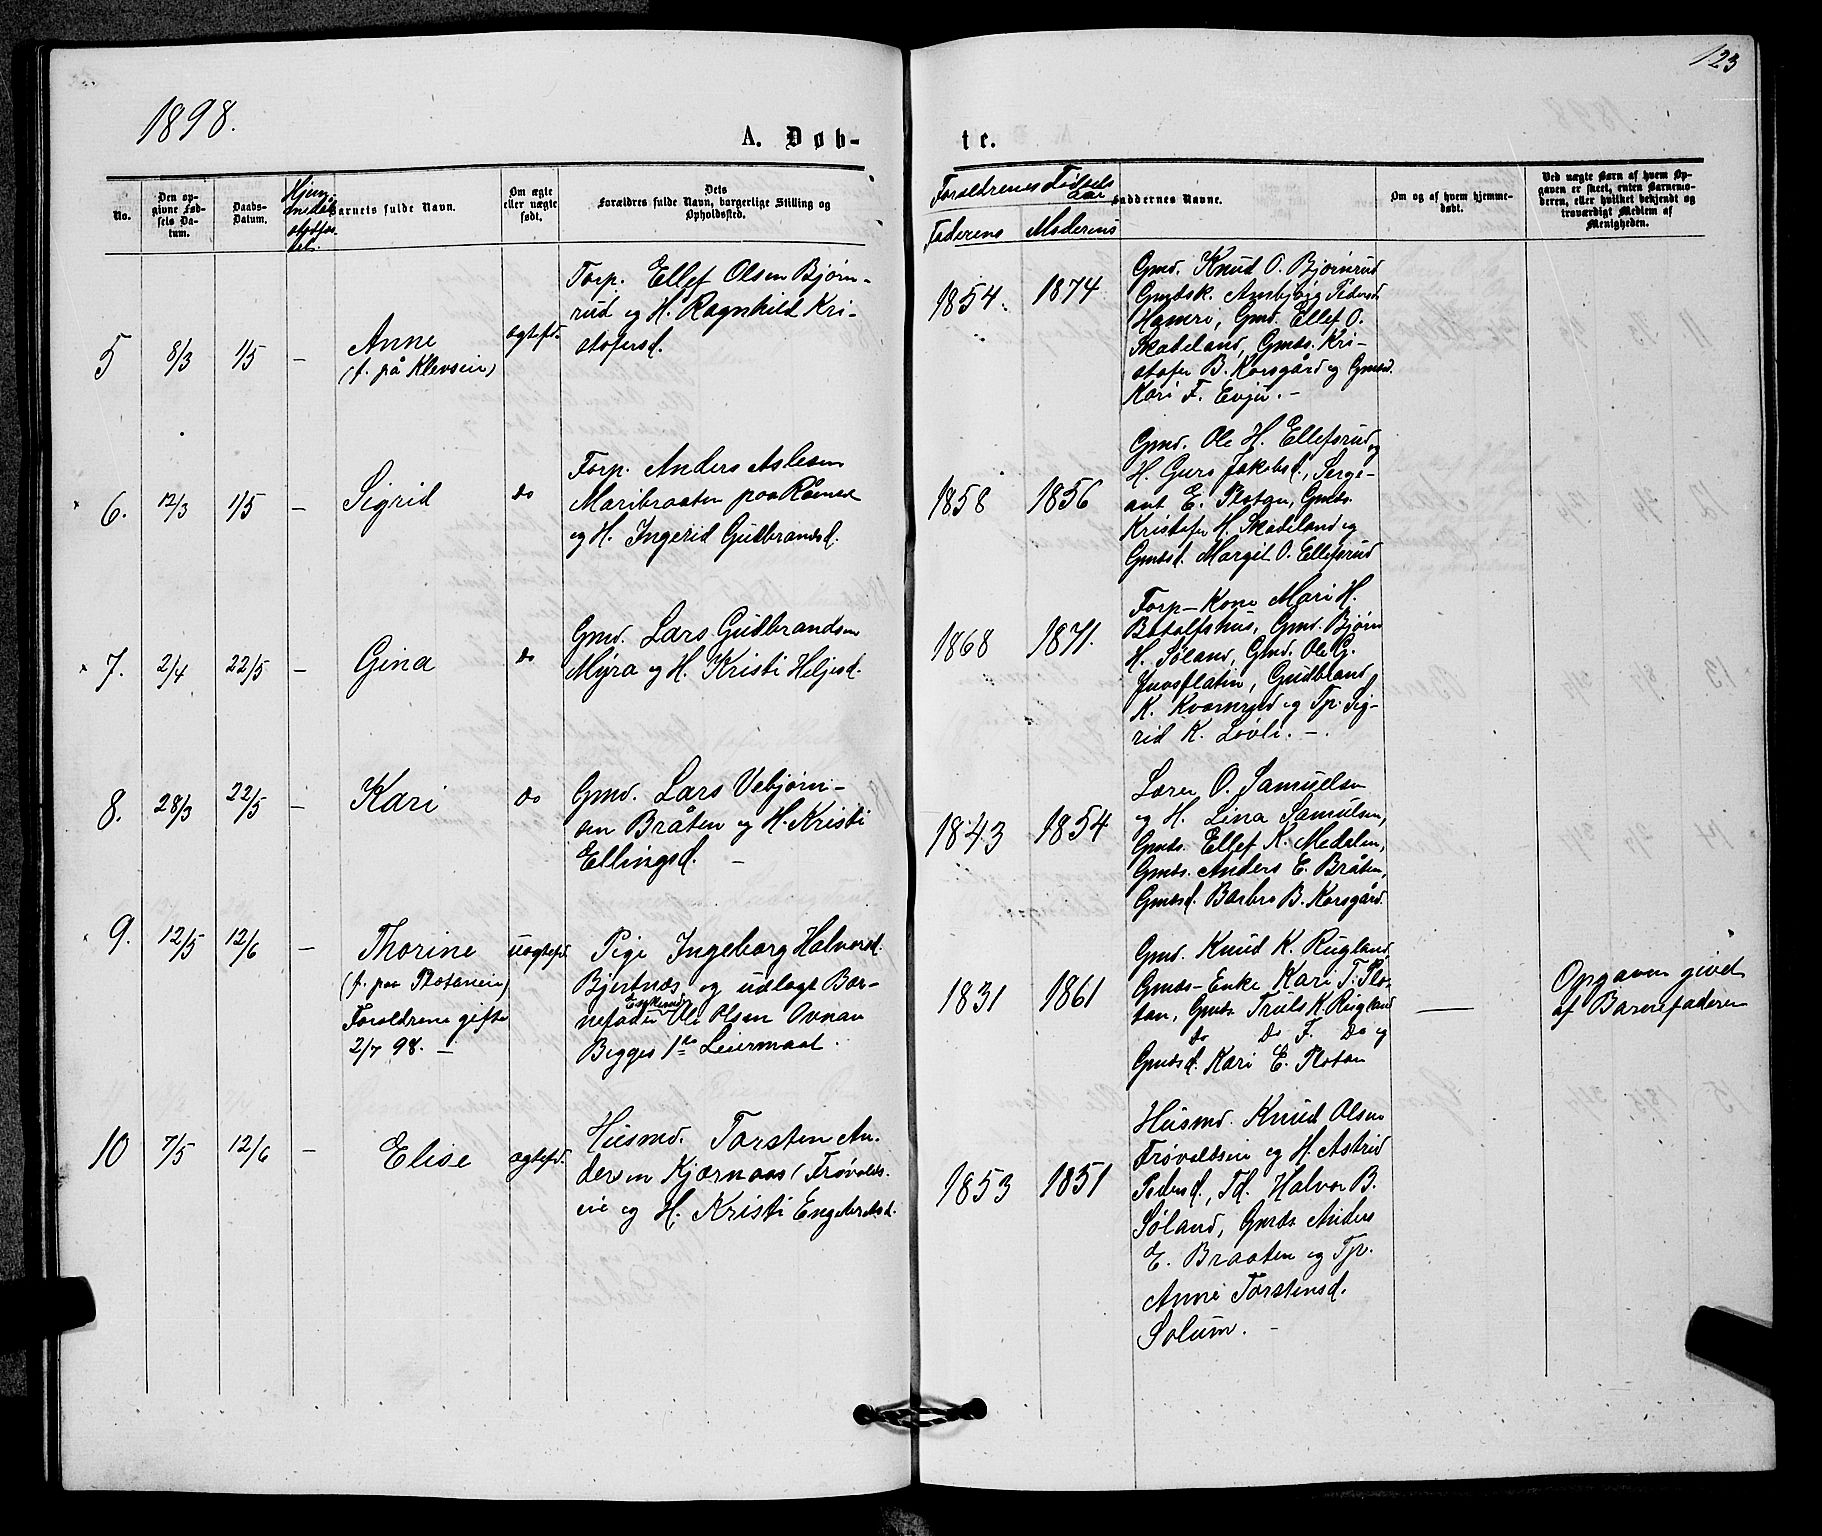 123
1898.
A. Døb-
te.
No.
Den op-
givne Fød-
sels Da-
tum.
Daabs-
Datum.
Barnets fulde Navn.
Om ægte
eller uægte
født.
Dets
Forældres fulde Navn, borgerlige Stilling og
Opholdssted.
Forældrenes Fødsels
aar
Faderens Moderens
Faddernes Navne.
Om og af hvem hjemme-
døbt.
Ved uægte Børn af hvem Op-
gaven er skeet, enten Barnemo-
deren, eller hvilket bekjendt og
troværdigt Medlem af
Menigheden.
5
8/3
1/5
–
Anne
(f. på Klevseie)
ægtefd.
Torp. Ellef Olsen Bjørn-
rud og H. Ragnhild Kri-
stofersd.
1854.
1874
Gmd. Knud O. Bjørnrud
Hamri, Gmd. Ellef O.
Skadeland, Gmds. Kri-
stofer B. Korsgård og Gmdsd.
Kari F. Evju. –
6.
12/3
1/5
–
Sigrid
do
Forp. Anders Aslesen
Maribraaten paa
og H. Ingerid Gudbrandsd.
1858
1856
Gmd. Ole H. Ellefsrud og
H. Guro Jakobsd., Serge-
ant E. Plotan, Gmds.
Kristofer H. Skadeland og
Gmdsd. Margit O. Ellefsrud
7.
2/4
22/5
–
Gina
do
Gmd. Lars Gudbrandsen
Myra og H. Kristi Heljesd.
1868
1871.
Forp-Kone Mari H.
Botolfshus, Gmd. Bjørn
H. Søland, Gmd. Ole G.
Juvsflatin, Gudbrand
K. og Tp. Sig-
rid K. Løvli. –
8.
28/3
22/5
–
Kari
do
Gmd. Lars Vebjørn-
sen Bråten og H. Kristi
Ellingsd. –
1843
1854
Lærer O. Samuelsen
og H. Lina Samulsen,
Gmds. Ellef K. Medalen,
Gmds. Anders E. Bråten,
Gmdsd. Barbro B. Korsgård.
9.
12/5
12/6
–
Thorine
(f. paa Plotaneie)
Forældrene gifte
2/7 98. –
uægtefd.
Pige Ingeborg Halvorsd.
Bjertnæs og udlagt Bar-
nefader Ole Olsen Ovnan
Begges 1ste Leiermaal.
1831
1861
Gmd. Knud K. Rugland,
Gmds-Enke Kari T. Plo-
tan, Gmds. Truls K. Rugland
do Do F. Do og
Gmdsd. Kari E. Plotan
—
Opgaven givet
af Barnefaderen
10
7/5
12/6
–
Elise
ægtefd.
Husmd. Torsten An-
dersen Kjærnaas (Frøvolds-
eie og H. Kristi Engebretsd.
1853
1851
Husmd. Knud Olsen
Frøvoldseie og H. Astrid
Pedersd., Td. Halvor B.
Søland, Gmds Anders
E. Braaten og Tp.
Anne Torstensd.
Solum. –